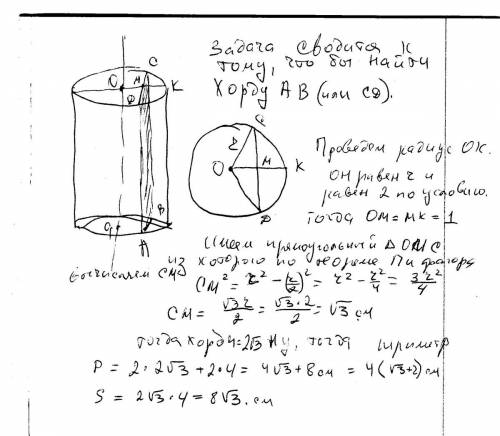 Задача сводится к
тому, что бы найти
Хорду AB (или CD).
O M C K
D
O₁ B
A
C
O M K
D
2
Проведем радиус OK.
он равен r и
равен 2 по условию.
тогда OM = MK = 1
Ищем прямоугольный Δ OMC
из которого по теореме Пифагора
вычисляем CM
CM² = r² - (r/2)² = r² - r²/4 = 3r²/4
CM = √3r/2 = √3·2/2 = √3 см
тогда хорда = 2√3 Ну, тогда периметр
P = 2·2√3 + 2·4 = 4√3 + 8 см = 4(√3+2) см
S = 2√3·4 = 8√3. см